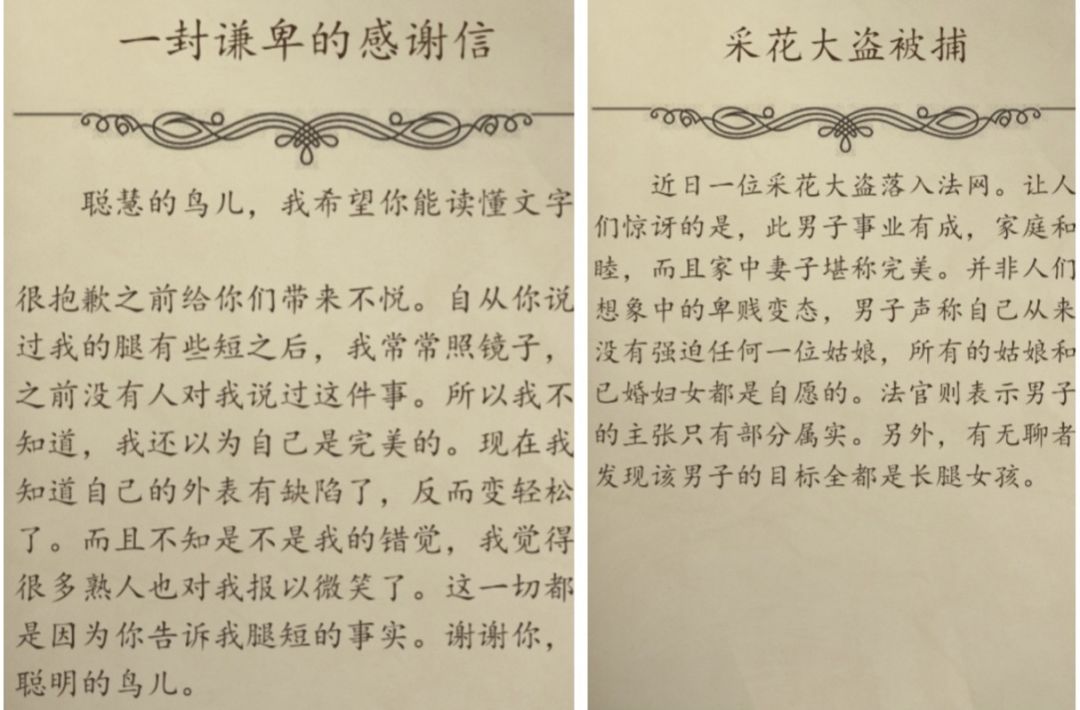 一封谦卑的感谢信
聪慧的鸟儿，我希望你能读懂文字
很抱歉之前给你们带来不悦。自从你说
过我的腿有些短之后，我常常照镜子，
之前没有人对我说过这件事。所以我不
知道，我还以为自己是完美的。现在我
知道自己的外表有缺陷了，反而变轻松
了。而且不知是不是我的错觉，我觉得
很多熟人也对我报以微笑了。这一切都
是因为你告诉我腿短的事实。谢谢你，
聪明的鸟儿。
采花大盗被捕
近日一位采花大盗落入法网。让人
们惊讶的是，此男子事业有成，家庭和
睦，而且家中妻子堪称完美。并非人们
想象中的卑贱变态，男子声称自己从来
没有强迫任何一位姑娘，所有的姑娘和
已婚妇女都是自愿的。法官则表示男子
的主张只有部分属实。另外，有无聊者
发现该男子的目标全都是长腿女孩。